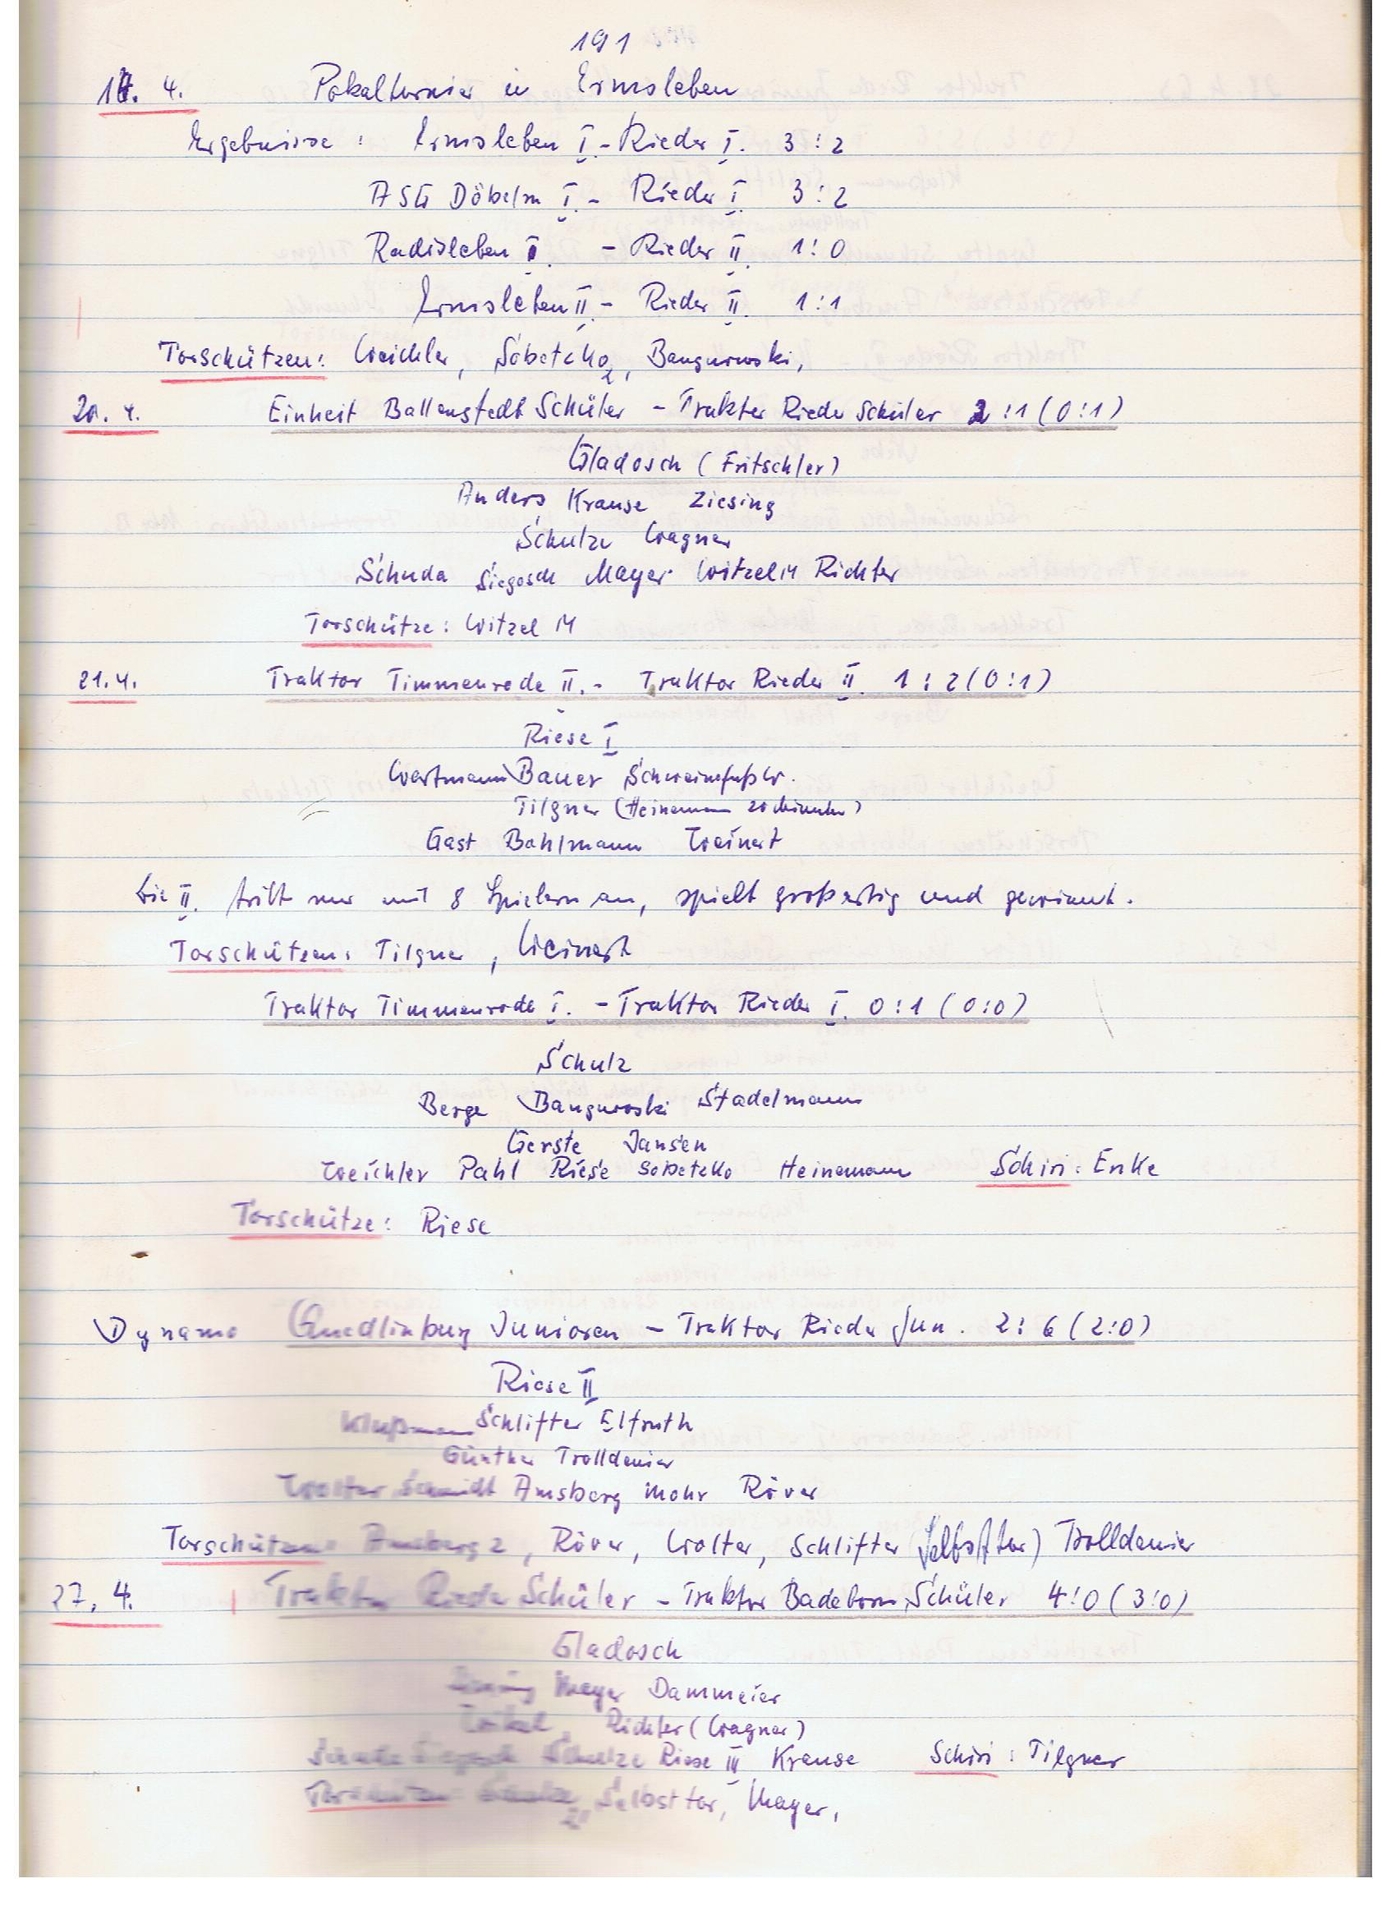 191
18. 4. Pokalturnier in Ermsleben
Ergebnisse: Ermsleben I. - Rieder I. 3:2
ASG Döbeln I. - Rieder I. 3:2
Radisleben I. - Rieder II. 1:0
Ermsleben II. - Rieder II. 1:1
Torschützen: Weichler, Sobetzko 2, Bangurowski,
20. 4. Einheit Ballenstedt Schüler - Traktor Rieder Schüler 2:1 (0:1)
Gladosch (Fritschler)
Anders Krause Ziesing
Schulze Wagner
Schuda Siegosch Mayer Witzel M Richter
Torschütze: Witzel M
21.4. Traktor Timmenrode II. - Traktor Rieder II. 1:2 (0:1)
Riese I
Wertmann Bauer Schweinefußlr.
Tilgner (Heinemann 20 Minuten)
Gast Bahlmann Weinert
Die II. tritt nur mit 8 Spielern an, spielt großartig und gewinnt.
Torschützen: Tilgner, Weinert
Traktor Timmenrode I. - Traktor Rieder I. 0:1 (0:0)
Schulz
Berge Bangurowski Stadelmann
Gerste Jansen
Weichler Pahl Riese Sobetzko Heinemann Schiri: Enke
Torschütze: Riese
Dynamo Quedlinburg Junioren - Traktor Rieder Jun. 2:6 (2:0)
Riese II
Klußmann Schlifter Elfruth
Günther Trolldenier
Wolter Schmidt Amsberg Mohr Röver
Torschützen: Amsberg 2, Röver, Wolter, Schlifter (Selbsttor) Trolldenier
27. 4. Traktor Rieder Schüler - Traktor Badeborn Schüler 4:0 (3:0)
Gladosch
Mayer Dammeier
Richter (Wagner)
Schuda Siegosch Schulze Riese III Krause Schiri: Tilgner
Torschützen: Schulze 2, Selbsttor, Mayer,